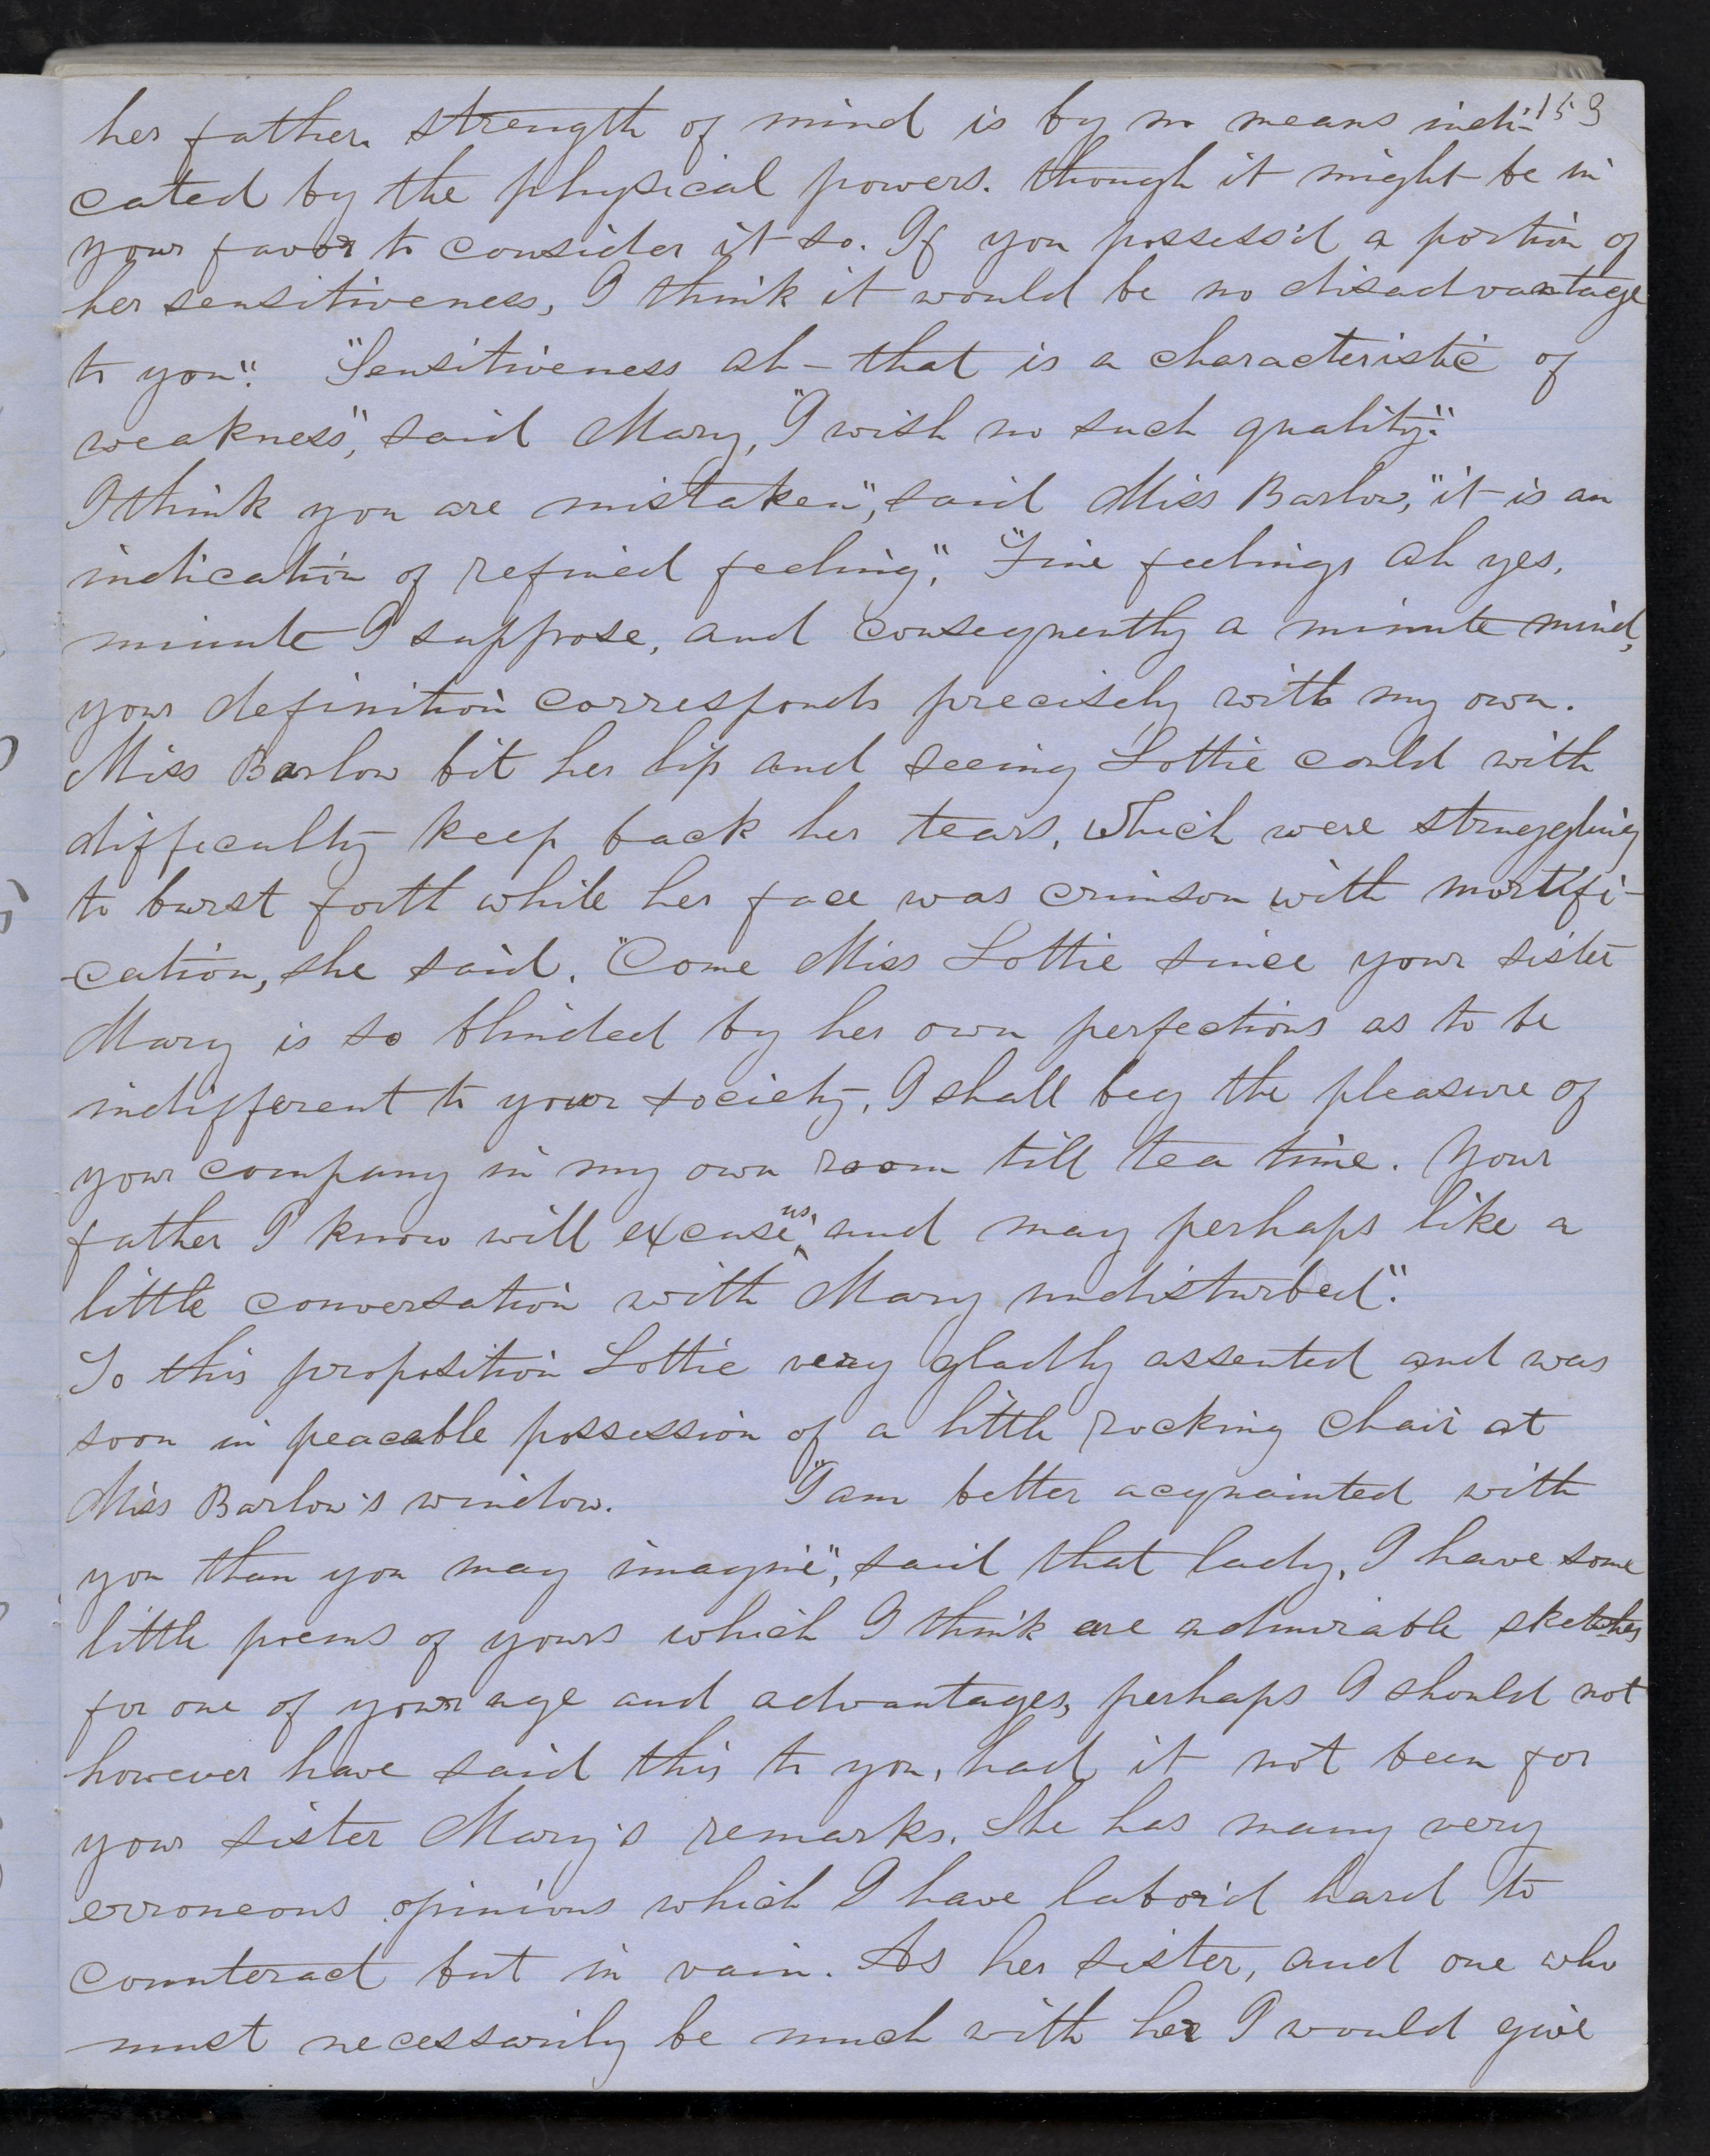 153
her father. Strength of mind is by no means indi-
cated by the physical powers. though it might be in
your favor to consider it so. If you possess'd a portion of
her sensitiveness, I think it would be no disadvantage
to you". "Sensitiveness ah - that is a characteristic of
weakness", said Mary, "I wish no such quality".
I think you are mistaken", said Miss Barlow, "it is an
indication of refined feeling". "Fine feelings ah yes,
minute I suppose, and consequently a minute mind,
your definition corresponds precisely with my own.
Miss Barlow bit her lip and seeing Lottie could with
difficulty keep back her tears, which were struggling
to burst forth while her face was crimson with mortifi-
cation, she said. "Come Miss Lottie since your sister
Mary is so blinded by her own perfections as to be
indifferent to your society, I shall beg the pleasure of
your company in my own room till tea time. Your
father I know will excuse us, and may perhaps like a
little conversation with Mary undisturbed".
To this proposition Lottie very gladly assented and was
soon in peacable possession of a little rocking chair at
Miss Barlow's window. "I am better acquainted with
you than you may imagine", said that lady, I have some
little poems of yours which I think are admirable sketches
for one of your age and advantages, perhaps I should not
however have said this to you, had it not been for
your sister Mary's remarks. She has many very
erroneous opinions which I have labor'd hard to
counteract but in vain. As her sister, and one who
must necessarily be much with her I would give